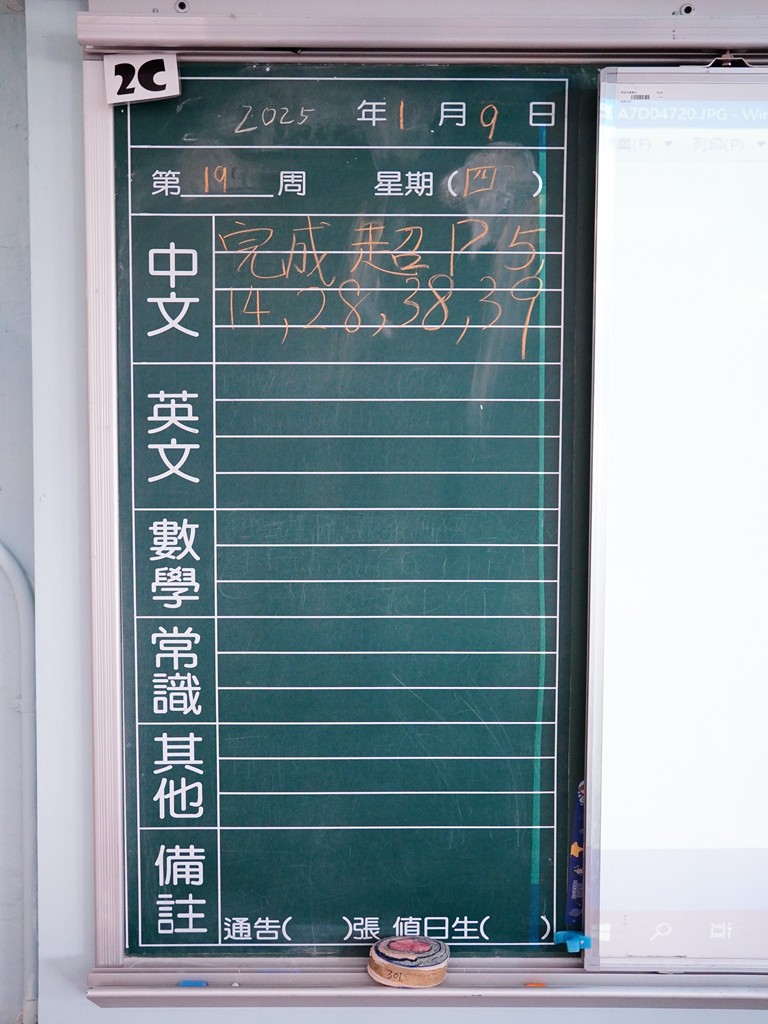 2C
2025 年 1 月 9 日
第 19 周 星期 ( 四 )
中文
完成 超 P 5,
14, 28, 38, 39
英文
數學
常識
其他
備註
通告( )張 值日生( )
301
A7D04720.JPG - Win
列印(P)